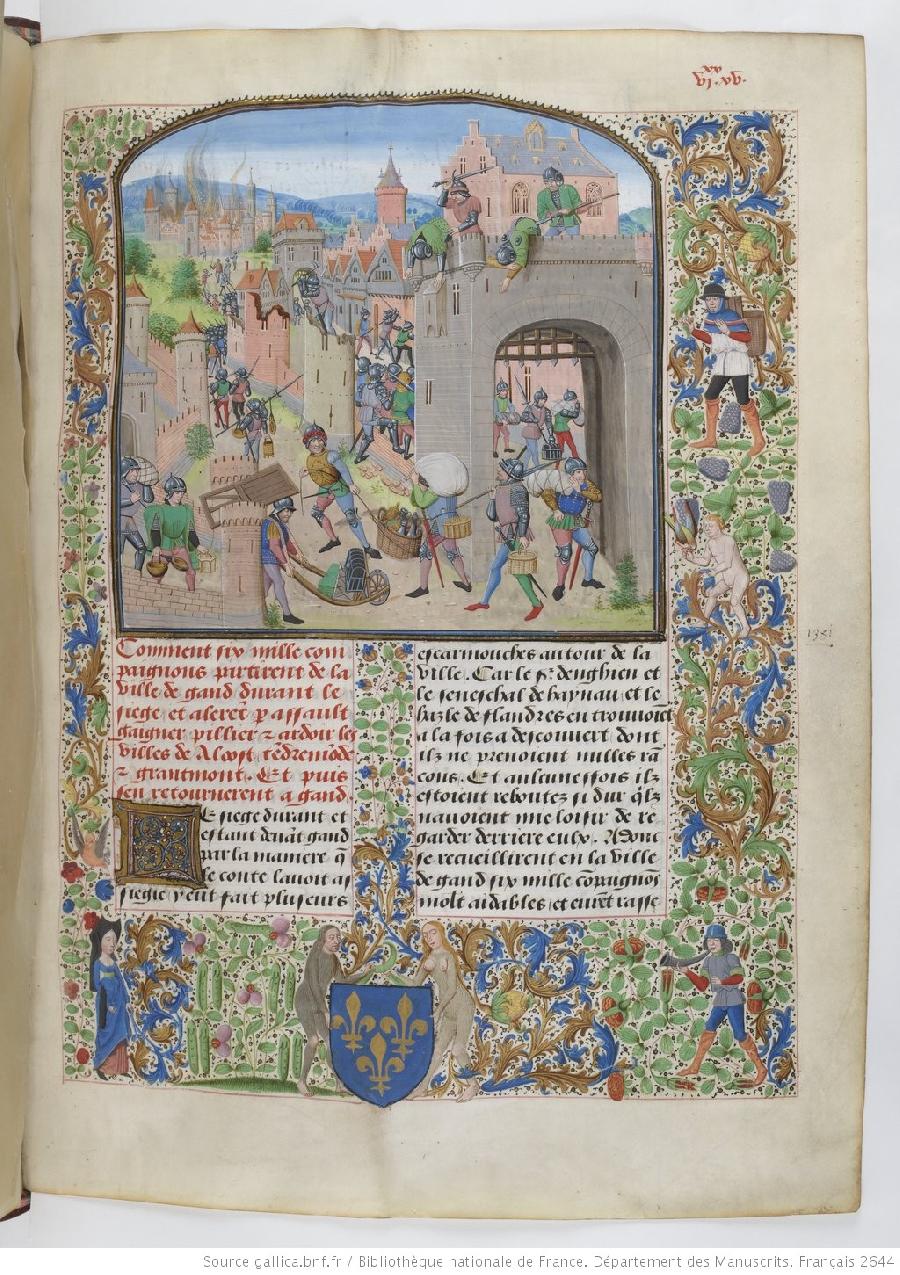 vi.xx vb.
Comment six mille com
paignons partirent de la
ville de gand durant le
siege et alerẽt p assault
gaigner pillier ⁊ ardoir les
villes de Alost, tẽdremõde
⁊ grantmont. Et puis
sen retournerent a gand
Le siege durant et
estant deuãt gand
par la maniere q̃
le conte lauoit as
siegie y eut fait pluseurs
escarmouches autour de la
ville. Car le sr. denghien et
le seneschal de haynau et le
hazle de flandres en trouuoiẽt
a la fois a descouuert dont
ilz ne prenoient nulles rã
cons. Et aulcunesfois ilz
estoient reboutez si dur q̃lz
nauoient mie loisir de re
garder derriere eulx. Adont
se recueillirent en la ville
de gand six mille cõpaignõs
molt aidables, et eurẽt rasse
1381
Source gallica.bnf.fr / Bibliothèque nationale de France. Département des Manuscrits. Français 2644